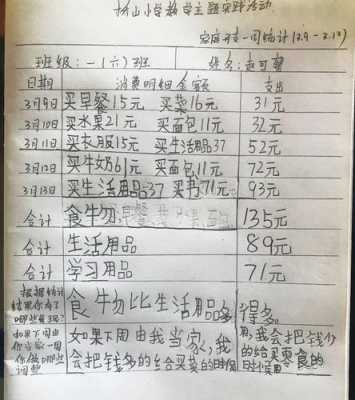 杨山小学数学主题实践活动
家庭开支一周统计(3.9-3.13)
班级:一(六)班 姓名:赵可馨
日期 消费明细金额 支出
3月9日 买早餐15元 买菜16元 31元
3月10日 买水果21元 买面包11元 32元
3月11日 买衣服15元 买生活用品37 52元
3月12日 买牛奶61元 买面包11元 72元
3月13日 买生活用品37 买书71元 93元
合计 食牛勿 135元
合计 生活用品 89元
合计 学习用品 71元
根据统计
结果你有了
哪些发现?
食牛勿比生活用品多得多。
如果下周由
你当家一周
你做哪些
调整
如果下周由我当家,我会把钱少
会把钱多的给买菜的时候 的给买零食的
时候用